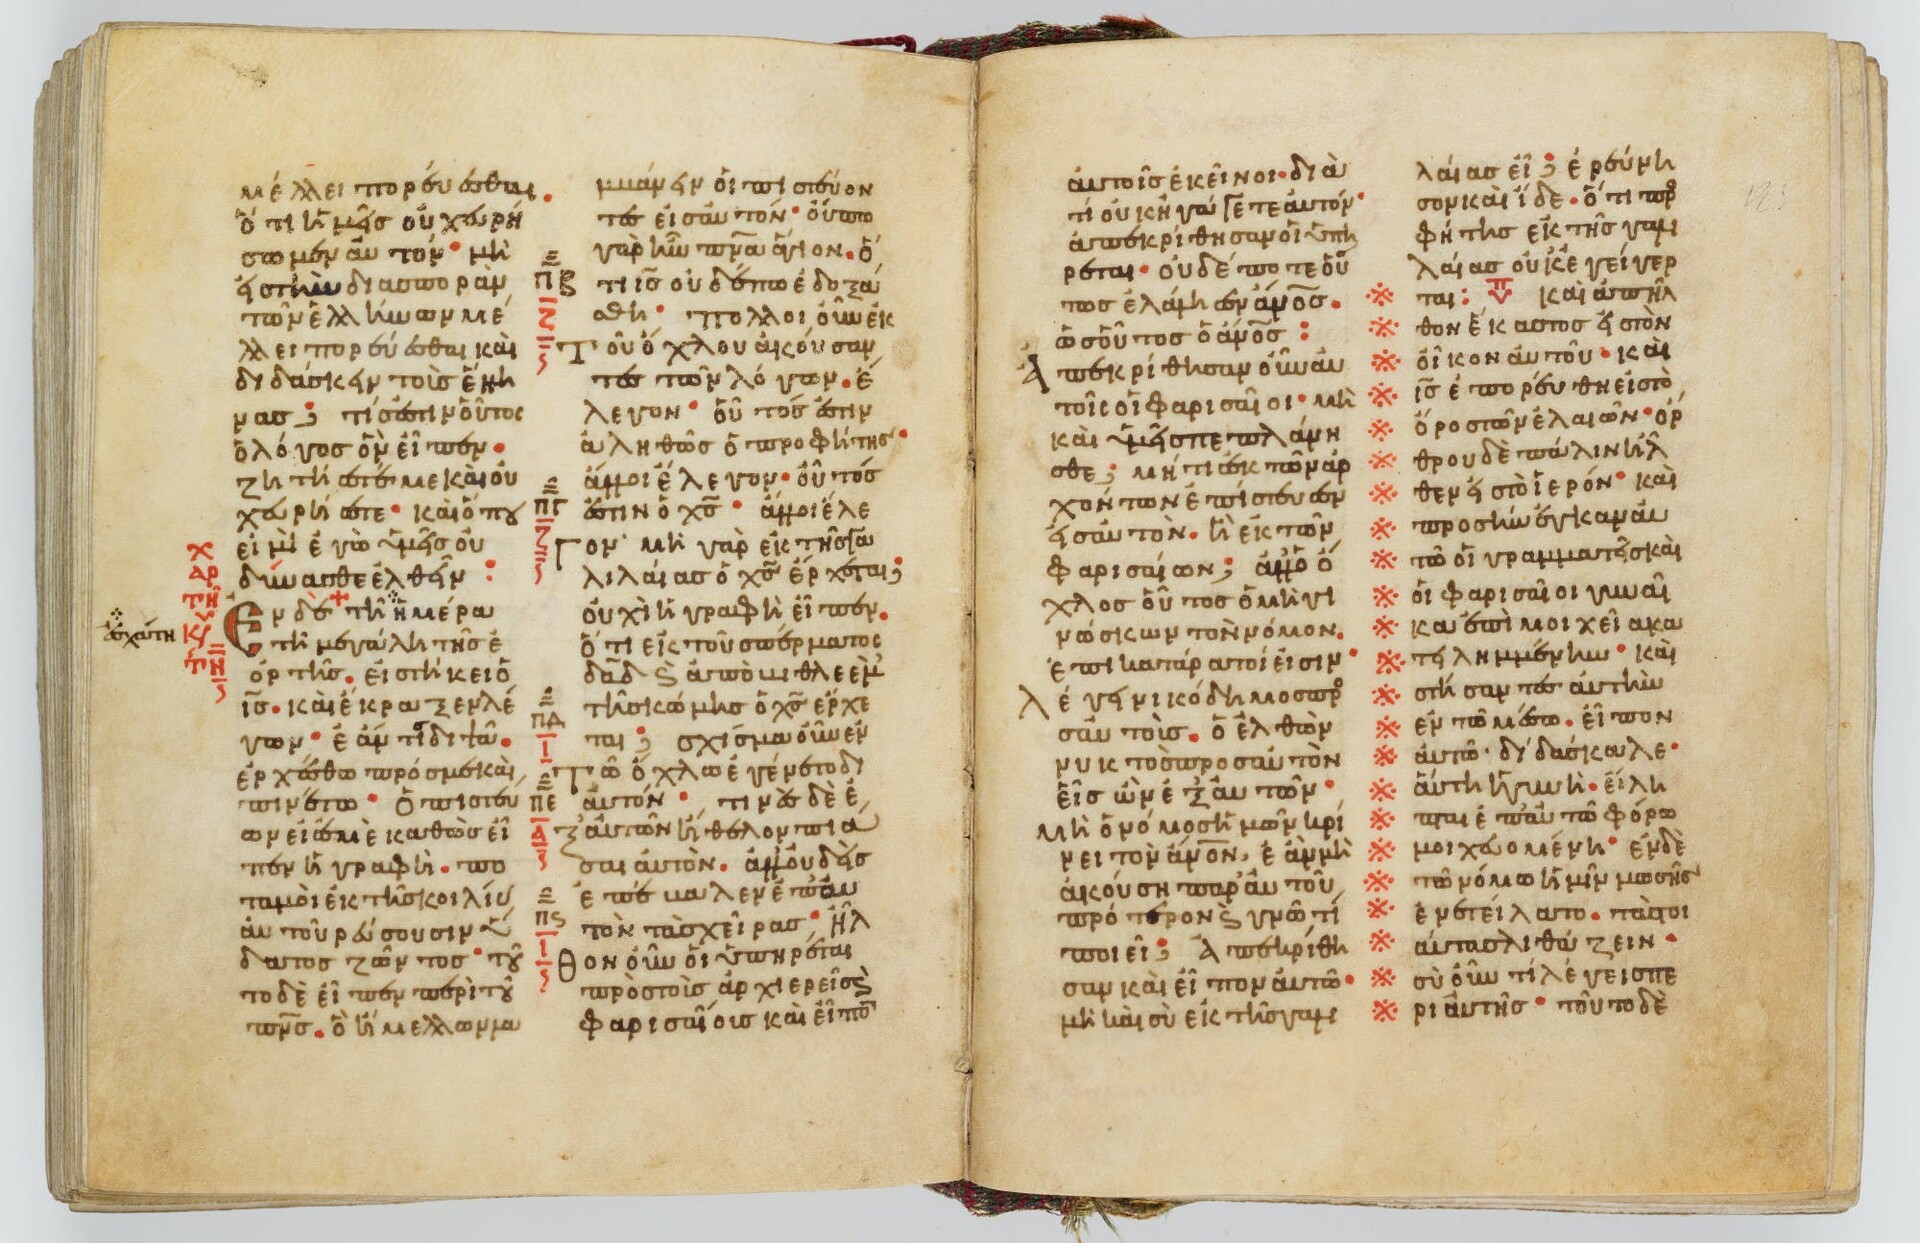 μέλλει πορεύεσθαι
ὅτι ἡμεῖς οὐχ εὑρή
σωμεν αὐτόν· μὴ
εἰς τὴν διασπορὰν
τῶν ἑλλήνων μέ
λλει πορεύεσθαι καὶ
διδάσκειν τοὺς ἕλλη
νας; τίς ἐστιν οὗτος
ὁ λόγος ὃν εἶπεν·
ζητήσετέ με καὶ οὐ
χ εὑρήσετε· καὶ ὅπου
εἰμὶ ἐγὼ ὑμεῖς οὐ
δύνασθε ἐλθεῖν :
Ἐν δὲ + τῆ ἡμέρα
τῆ μεγάλη τῆς ἑ
ορτῆς. εἱστήκει ὁ
ἰς. καὶ ἔκραζεν λέ
γων· ἐάν τις διψᾶ.
ἐρχέσθω πρός με καὶ
πινέτω· ὁ πιστεύ
ων εἰς ἐμὲ καθὼς εἶ
πεν ἡ γραφὴ. πο
ταμοὶ ἐκ τῆς κοιλίας
αὐτοῦ ῥεύσουσιν ὕ
δατος ζῶντος· τοῦ
το δὲ εἶπεν περὶ τοῦ
πνς. ὃ ἤμελλον λαμ
ἐσχάτη
πβ
πγ
πδ
πε
πς
μβάνειν οἱ πιστεύον
τες εἰς αὐτόν· οὔπω
γὰρ ἦν πνα ἅγιον. ὅ
τι ἰς οὐδέπω ἐδοξά
σθη· πολλοὶ οὖν ἐκ
τοῦ ὄχλου ἀκούσαν
τες τῶν λόγων. ἔ
λεγον· οὗτος ἐστιν
ἀληθῶς ὁ προφήτης·
ἄλλοι ἔλεγον· οὗτός
ἐστιν ὁ χς· ἄλλοι ἔλε
γον· μὴ γὰρ ἐκ τῆς γα
λιλαίας ὁ χς ἔρχεται;
οὐχὶ ἡ γραφὴ εἶπεν.
ὅτι ἐκ τοῦ σπέρματος
δαδ καὶ ἀπὸ βηθλεὲμ
τῆς κώμης ὁ χς ἔρχε
ται; σχίσμα οὖν ἐν
τῶ ὄχλω ἐγένετο δι
αὐτόν· τινὲς δὲ ἐ
ξ αὐτῶν ἤθελον πιά
σαι αὐτὸν. ἀλλ οὐδεὶς
ἐπέβαλεν ἐπ αὐ
τὸν τὰς χεῖρας· ἦλ
θον οὖν οἱ ὑπηρέται
πρὸς τοὺς ἀρχιερεῖς καὶ
φαρισαίους καὶ εἶπον
αὐτοῖς ἐκεῖνοι· διὰ
τί οὐκ ἠγάγετε αὐτόν·
ἀπεκρίθησαν οἱ ὑπη
ρέται· οὐδέποτε οὕ
τως ἐλάλησεν ἄνος.
ὡς οὗτος ὁ ἄνος :
Ἀπεκρίθησαν οὖν αὐ
τοῖς οἱ φαρισαῖοι· μὴ
καὶ ὑμεῖς πεπλάνη
σθε; μή τις ἐκ τῶν ἀρ
χόντων ἐπίστευσεν
εἰς αὐτὸν. ἢ ἐκ τῶν
φαρισαίων; ἀλλ ὁ ὄ
χλος οὗτος ὁ μὴ γι
νώσκων τὸν νόμον.
ἐπικατάρατοί εἰσιν·
λέγει νικόδημος πρὸς
αὐτούς. ὁ ἐλθὼν
νυκτὸς πρὸς αὐτὸν
εἷς ὢν ἐξ αὐτῶν·
μὴ ὁ νόμος ἡμῶν κρί
νει τὸν ἄνον. ἐὰν μὴ
ἀκούση παρ αὐτοῦ
πρότερον καὶ γνῶ τί
ποιεῖ; Ἀπεκρίθη
σαν καὶ εἶπον αὐτῶ·
μὴ καὶ σὺ ἐκ τῆς γαλι
λαίας εἶ; ἐρεύνη
σον καὶ ἴδε. ὅτι προ
φήτης ἐκ τῆς γαλι
λαίας οὐκ ἐγείγερ
ται: καὶ ἀπῆλ
θον ἕκαστος εἰς τὸν
οἶκον αὐτοῦ· καὶ
ἰς ἐπορεύθη εἰς τὸ
ὄρος τῶν ἐλαιῶν· ὄρ
θρου δὲ πάλιν ἦλ
θεν εἰς τὸ ἱερόν· καὶ
προσήνεγκαν αὐ
τῶ οἱ γραμματεῖς καὶ
οἱ φαρισαῖοι γυναῖ
κα ἐπὶ μοιχεῖα κα
τειλημμένην· καὶ
στήσαντες αὐτὴν
ἐν τῶ μέσω. εἶπον
αὐτῶ· διδάσκαλε·
αὕτη ἡ γυνὴ. εἴλη
πται ἐπ αὐτῶ φόρω
μοιχευομένη· ἐν δὲ
τῶ νόμω ἡμῖν μωσῆς
ἐνετείλατο. τὰς τοι
αύτας λιθάζειν·
σὺ οὖν τί λέγεις πε
ρὶ αὐτῆς· τοῦτο δὲ